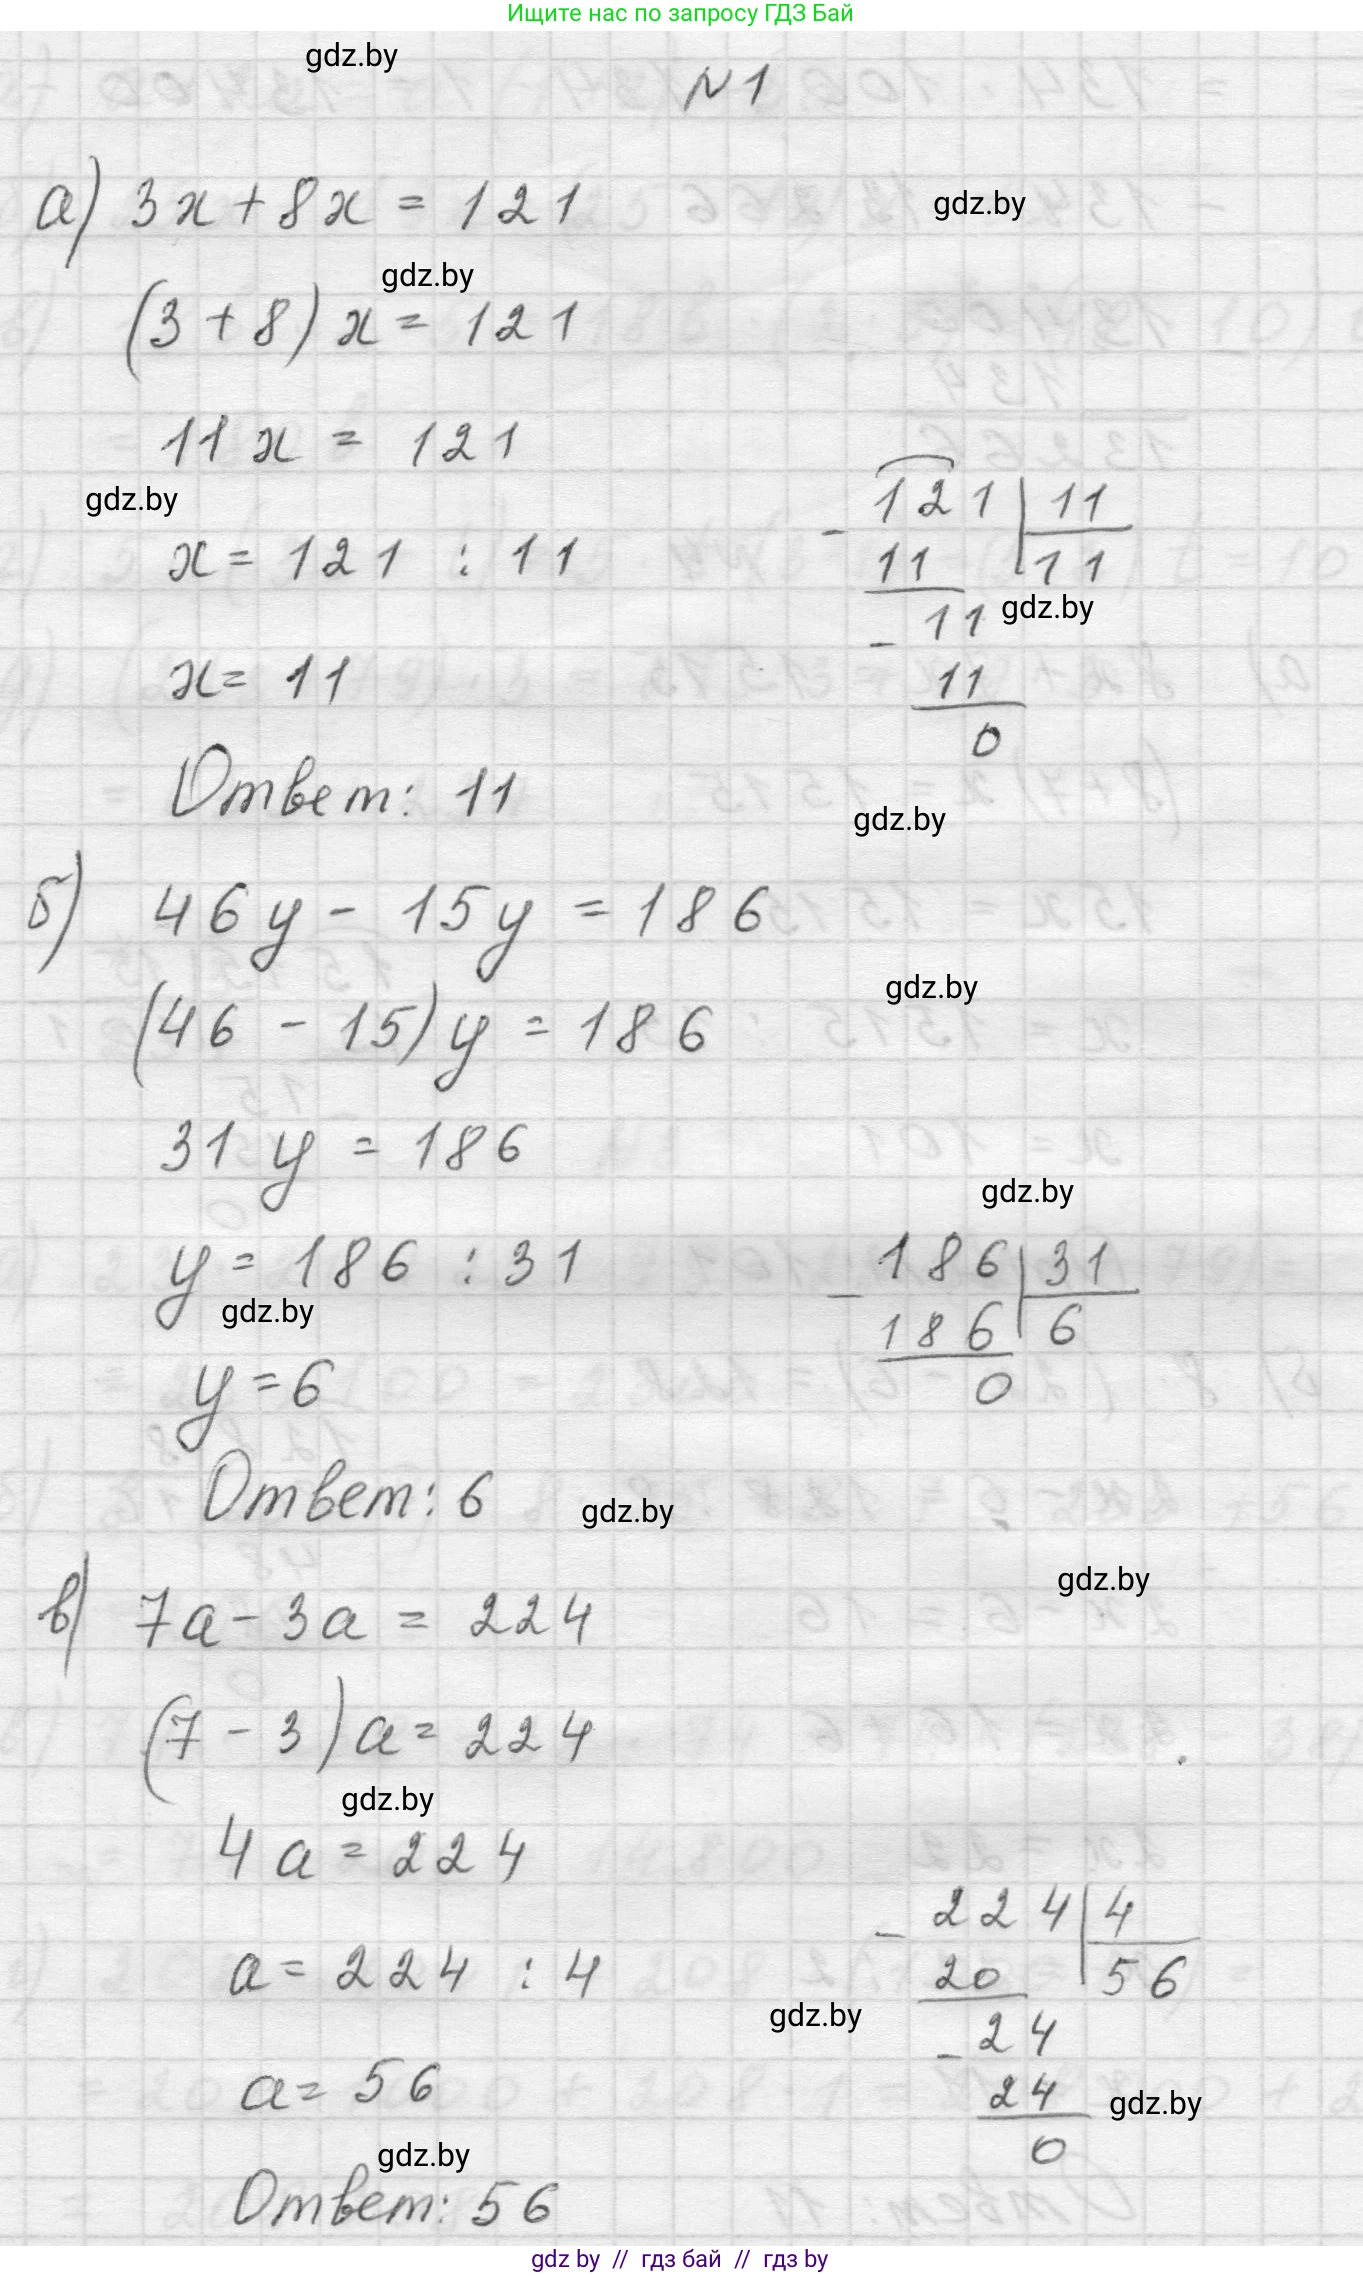 Ищите нас по запросу ГДЗ Бай
gdz.by
№1
а) 3x + 8x = 121
gdz.by
gdz.by
(3 + 8) x = 121
11 x = 121
gdz.by
x = 121 : 11
x = 11
Ответ: 11
121 | 11
- 11 11
gdz.by
- 11
11
0
gdz.by
б) 46y - 15y = 186
gdz.by
(46 - 15) y = 186
31 y = 186
gdz.by
y = 186 : 31
gdz.by
y = 6
Ответ: 6
- 186 | 31
186 6
0
gdz.by
gdz.by
в) 7a - 3a = 224
(7 - 3) a = 224
gdz.by
4 a = 224
a = 224 : 4
a = 56
gdz.by
Ответ: 56
- 224 | 4
20 56
gdz.by
- 24
24
gdz.by
0
gdz by // гдз бай // gdz by